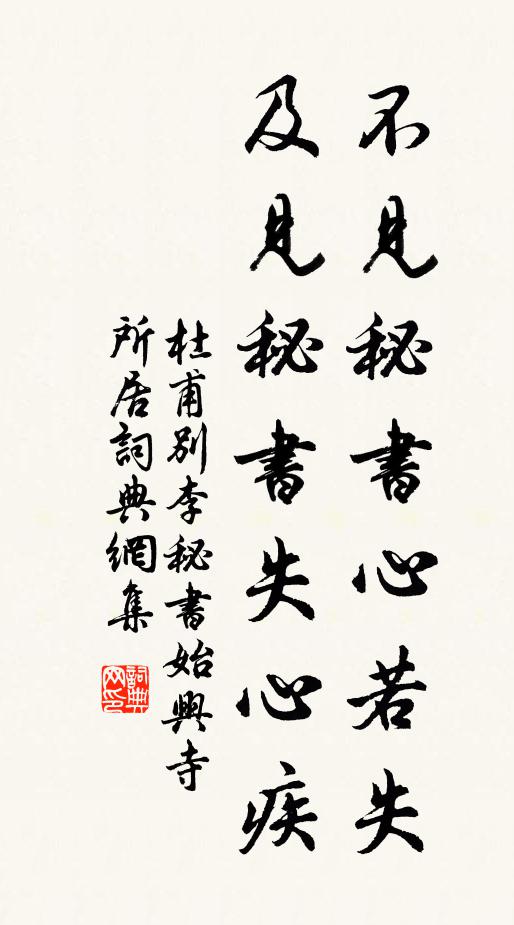 不見秘書心若失
及見秘書失心疾
杜甫別李秘書始興寺
所居詞典網集
詞典網印